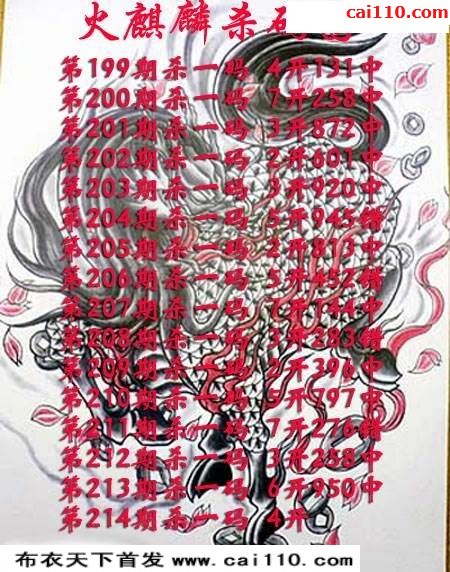 cai110.com
火麒麟杀码
第199期杀一码 4开131中
第200期杀一码 7开258中
第201期杀一码 3开872中
第202期杀一码 2开601中
第203期杀一码 3开920中
第204期杀一码 5开945错
第205期杀一码 2开813中
第206期杀一码 5开452错
第207期杀一码 7开144中
第208期杀一码 3开283错
第209期杀一码 2开396中
第210期杀一码 5开797中
第211期杀一码 7开276错
第212期杀一码 3开258中
第213期杀一码 6开950中
第214期杀一码 4开
布衣天下首发 www.cai110.com